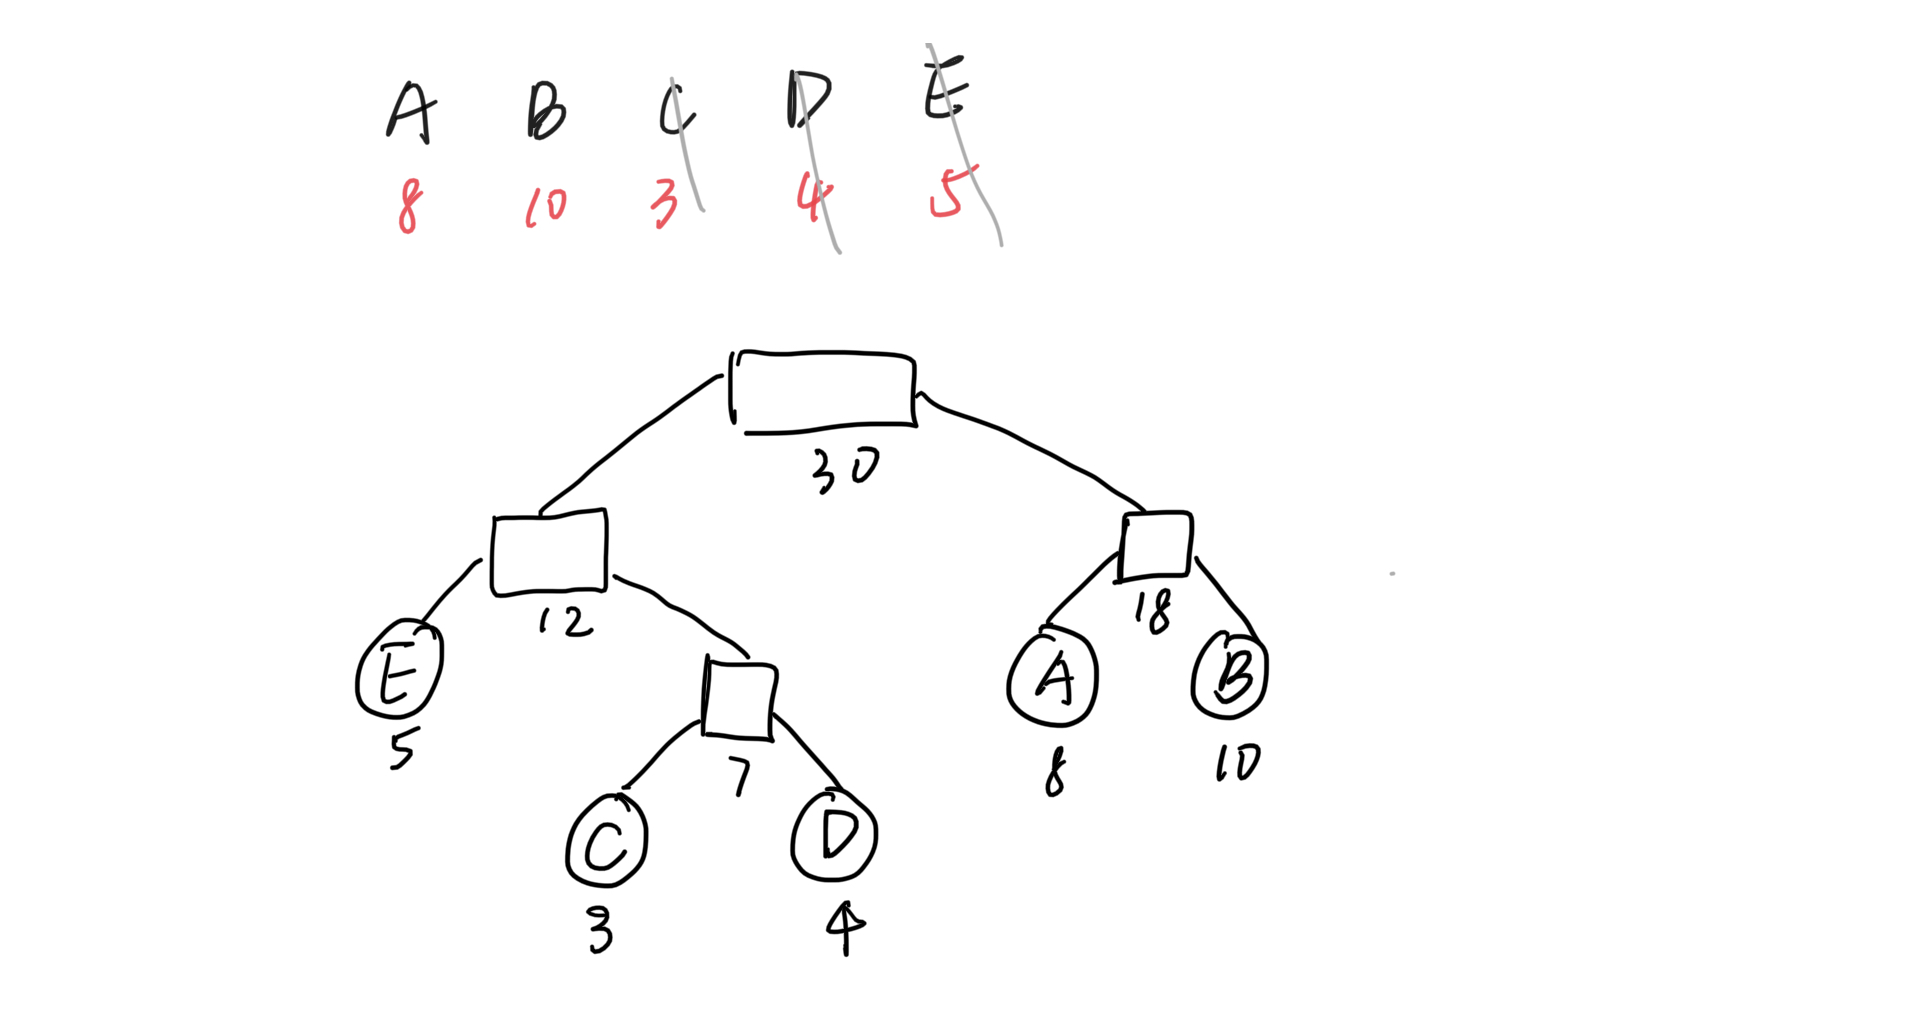 A B C D E
8 10 3 4 5
30
12 18
E A B
5 7 8 10
C D
3 4